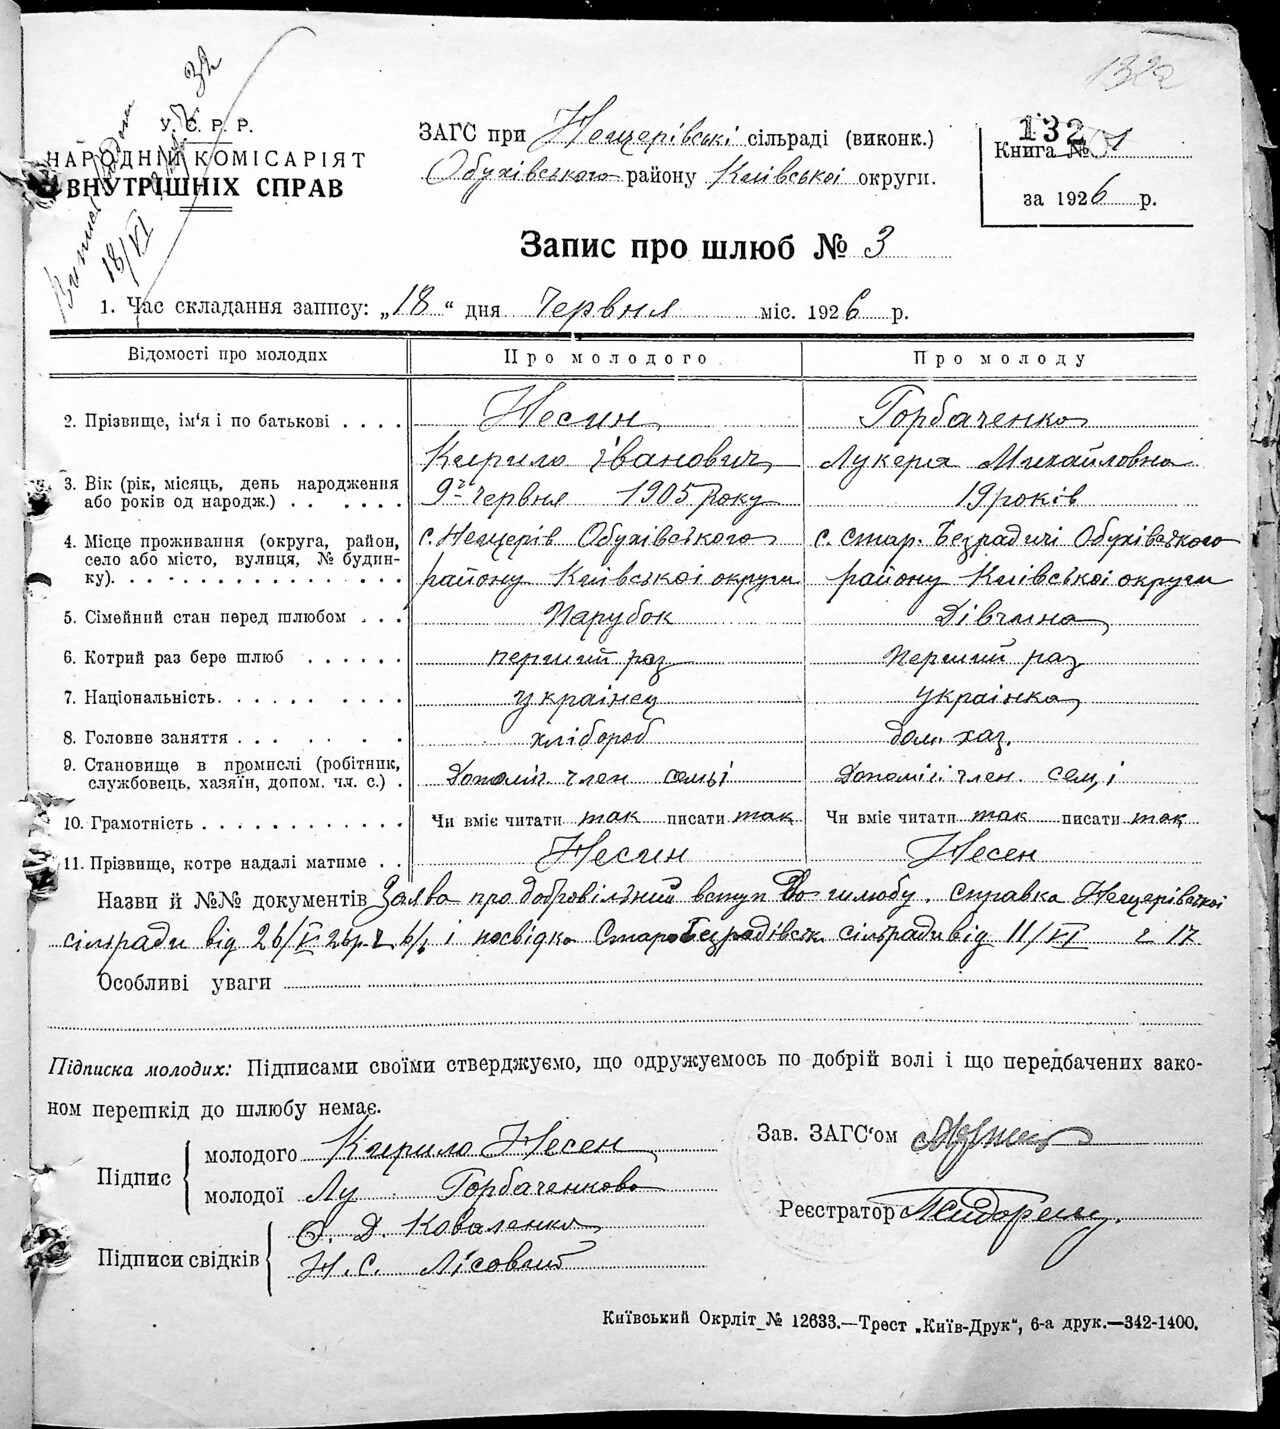 132
У. С. Р. Р.
НАРОДНІЙ КОМІСАРІЯТ
ВНУТРІШНІХ СПРАВ
18/VI
ЗАГС при Нещерівські сільраді (виконк.)
Обухівського району Київської округи.
132
Книга № 1
за 1926 р.
Запис про шлюб № 3
1. Час складання запису: „18“ дня Червня міс. 1926 р.
Відомості про молодих
Про молодого
Про молоду
2. Прізвище, ім'я і по батькові . . . .
Несин
Кирило Іванович
Горбаченко
Лукерія Михайловна
3. Вік (рік, місяць, день народження
або років од народж.) . . . . . .
9го Червня 1905 року
19 років
4. Місце проживання (округа, район,
село або місто, вулиця, № будин-
ку). . . . . . . . . . . . . . . .
с. Нещерів Обухівського
району Київської округи
с. Стар. Безрадичі Обухівського
району Київської округи
5. Сімейний стан перед шлюбом . . .
Парубок
Дівчина
6. Котрий раз бере шлюб . . . . . .
перший раз
перший раз
7. Національність. . . . . . . . . .
українец
українка
8. Головне заняття . . . . . . . .
хлібороб
дом. хаз.
9. Становище в промислі (робітник,
службовець, хазяїн, допом. чл. с.) .
допоміг член семьї
допоміг член сем,ї
10. Грамотність . . . . . . . . . . . .
Чи вміє читати так писати так
Чи вміє читати так писати так
11. Прізвище, котре надалі матиме . .
Несин
Несен
Назви й №№ документів Заява про добровільний вступ до шлюбу. справка Нещерівської
сільради від 26/V 26р. і посвідка Старобезрадівськ сільради від 11/VI 17
Особливі уваги
Підписка молодих: Підписами своїми стверджуємо, що одружуємось по добрій волі і що передбачених зако-
ном перешкід до шлюбу немає.
Підпис
молодого Кирило Несен
молодої Лу Горбаченкова
Підписи свідків
О. Д. Коваленко
Н. С. Лісовий
Зав. ЗАГС'ом
Реєстратор
Київський Окрліт № 12633.—Трест „Київ-Друк“, 6-а друк.—342-1400.